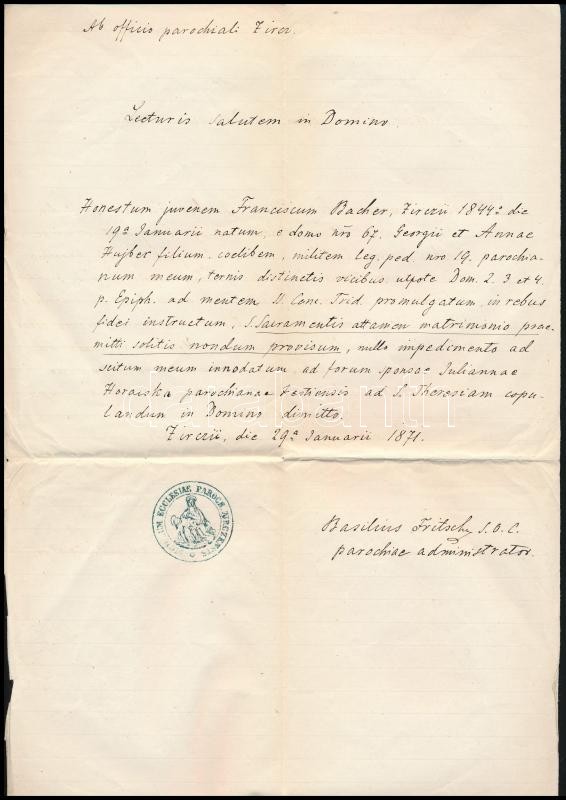 Ab officio parochiali Zircz.
Lecturis salutem in Domino.
Honestum juvenem Franciscum Bacher, Zirczii 1844º die
19ª Januarii natum, e domo nro 67. Georgii et Annae
Hujber filium, coelibem, militem leg. ped. nro 19. parochia-
num meum, ternis distinctis vicibus, utpote Dom. 2. 3. et 4.
p. Epiph. ad mentem S. Conc. Trid. promulgatum, in rebus
fidei instructum, S. Sacramentis attamen matrimonio prae-
mitti solitis nondum provisum, nullo impedimento ad
scitum meum innodatum, ad forum sponsae Juliannae
parochianae Pestiensis ad S. Theresiam copu-
landum in Domino dimitto.
Zirczii, die 29ª Januarii 1871.
Basilius Fritschy S. O. C.
parochiae administrator.
ECCLESIAE PAROCH